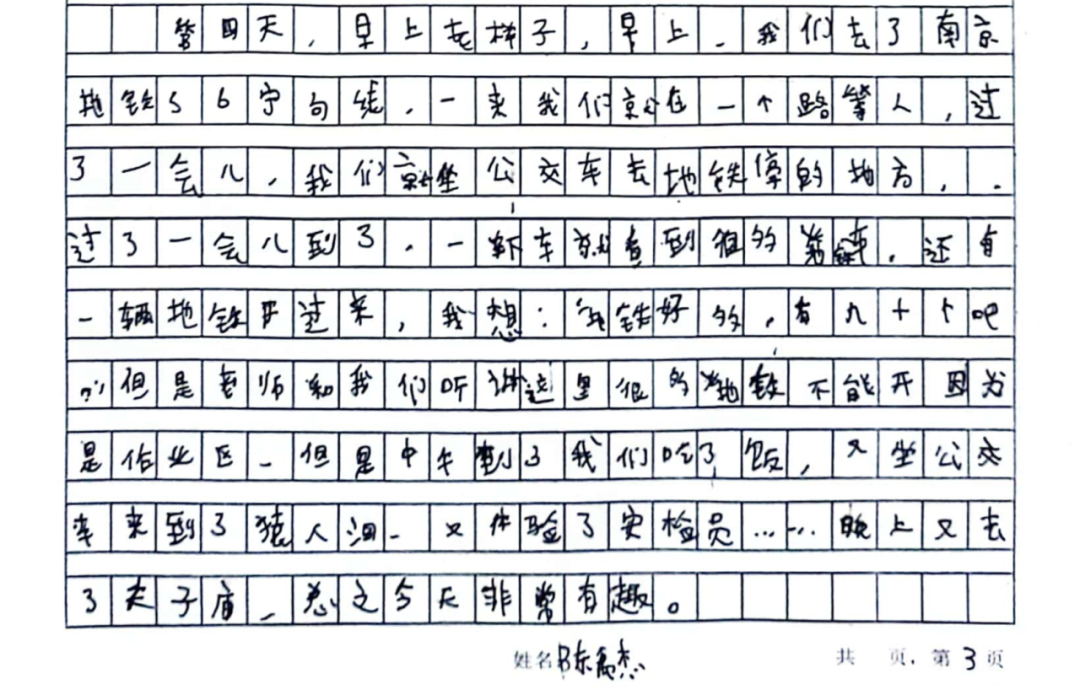 第四天,早上去样子,早上.我们去了南京
地铁S6宁句线.一来我们就在一个路等人,过
了一会儿,我们就坐公交车去地铁停的地方,.
过了一会儿到了.一下车就看到很多地铁.还有
一辆地铁开过来,我想:地铁好多,有九十个吧
但是老师和我们听讲这里很多地铁不能开因为
是作业区.但是中午到了我们吃了饭,又坐公交
车来到了猿人洞.又体验了实检员……晚上又去
了夫子庙.总之今天非常有趣。
姓名陈 杰
共 页,第3页